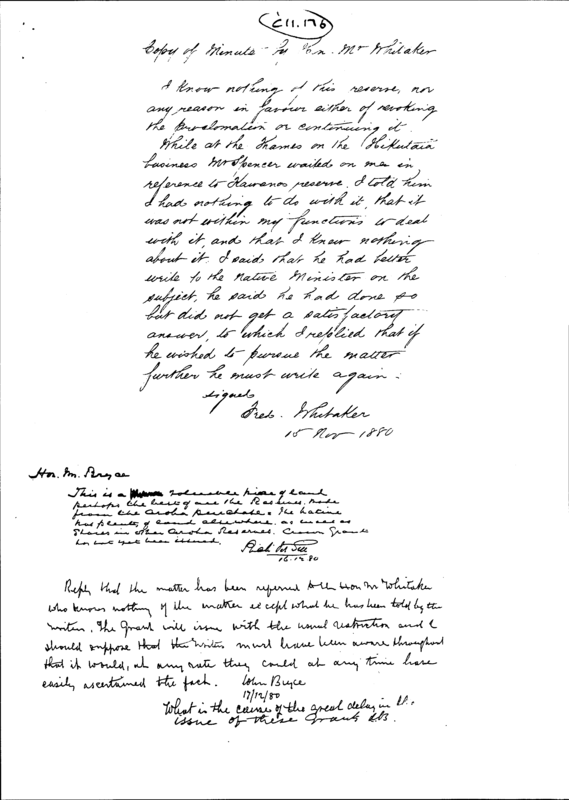 C11.176
Copy of Minute by Hn. Mr Whitaker
I know nothing of this reserve, nor
any reason in favour either of revoking
the Proclomation or continuing it.
While at the Thames on the Hikutaia
business Mr Spencer waited on me in
reference to Hawanos reserve. I told him
I had nothing to do with it, that it
was not within my functions to deal
with it, and that I knew nothing
about it. I said that he had better
write to the Native Minister on the
subject, he said he had done so
but did not get a satisfactory
answer, to which I replied that if
he wished to pursue the matter
further he must write again.
signed
Fred. Whitaker
15 Nov 1880
Hon. Mr. Bryce
This is a valuable piece of land
perhaps the best of all the Reserves made
from the Aroha purchase. The Native
has plenty of land elsewhere, as well as
Shares in other Aroha Reserves. Crown Grant
has not yet been issued.
16.12.80
Reply that the matter has been referred to the Hon Mr Whitaker
who knows nothing of the matter except what he has been told by the
writer. The Grant will issue with the usual restriction and I
should suppose that the writer must have been aware throughout
that it would, at any rate they could at any time have
easily ascertained the fact. John Bryce
17/12/80
What is the cause of the great delay in the
issue of these Grants JB.